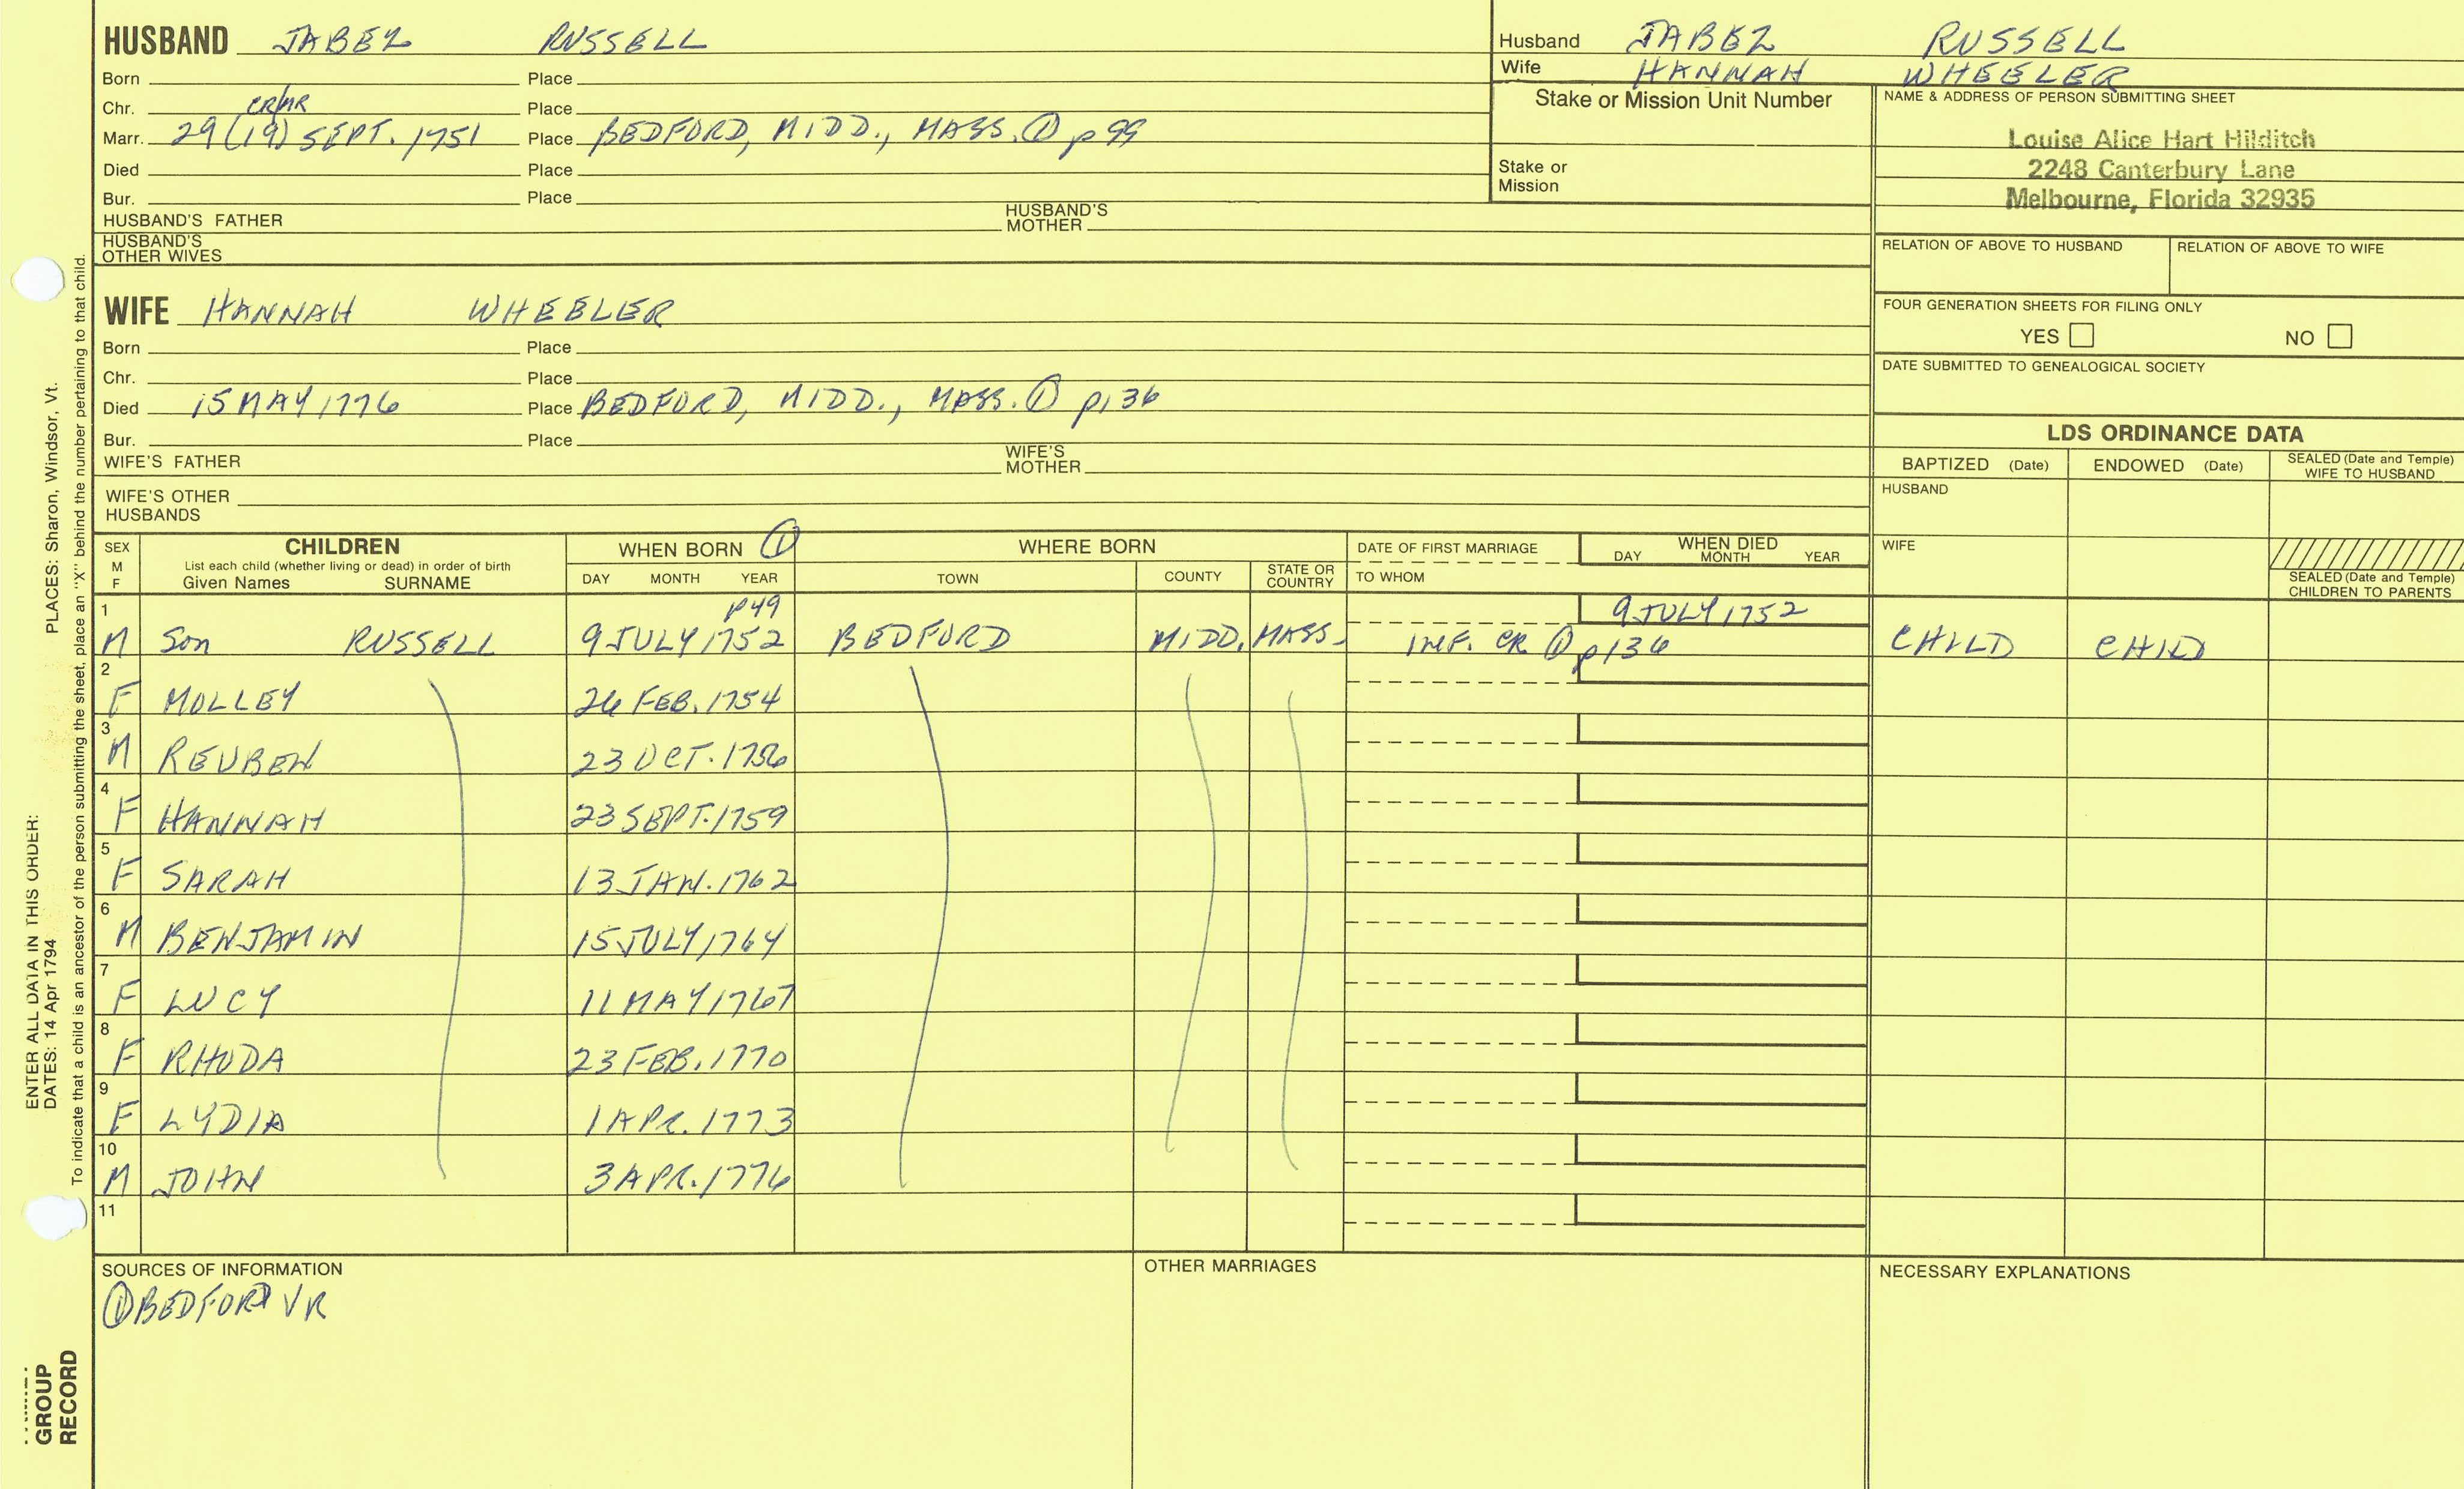 HUSBAND JABEZ RUSSELL
Born Place
Chr. CR/MR Place
Marr. 29(19) SEPT. 1751 Place BEDFORD, MIDD., MASS. ① p99
Died Place
Bur. Place
HUSBAND'S FATHER HUSBAND'S MOTHER
HUSBAND'S OTHER WIVES
Husband JABEZ RUSSELL
Wife HANNAH WHEELER
Stake or Mission Unit Number
Stake or Mission
NAME & ADDRESS OF PERSON SUBMITTING SHEET
Louise Alice Hart Hilditch
2248 Canterbury Lane
Melbourne, Florida 32935
RELATION OF ABOVE TO HUSBAND RELATION OF ABOVE TO WIFE
FOUR GENERATION SHEETS FOR FILING ONLY
YES NO
DATE SUBMITTED TO GENEALOGICAL SOCIETY
WIFE HANNAH WHEELER
Born Place
Chr. Place
Died 15 MAY 1776 Place BEDFORD, MIDD., MASS. ① p136
Bur. Place
WIFE'S FATHER WIFE'S MOTHER
WIFE'S OTHER HUSBANDS
LDS ORDINANCE DATA
BAPTIZED (Date) ENDOWED (Date) SEALED (Date and Temple) WIFE TO HUSBAND
HUSBAND
WIFE
SEALED (Date and Temple) CHILDREN TO PARENTS
SEX M F
CHILDREN
List each child (whether living or dead) in order of birth
Given Names SURNAME
WHEN BORN ①
DAY MONTH YEAR
WHERE BORN
TOWN COUNTY STATE OR COUNTRY
DATE OF FIRST MARRIAGE
TO WHOM
WHEN DIED
DAY MONTH YEAR
1 p49 9 JULY 1752
M Son RUSSELL 9 JULY 1752 BEDFORD MIDD. MASS. INF. CR ① p136 CHILD CHILD
2
F MOLLEY 26 FEB. 1754
3
M REUBEN 23 OCT. 1756
4
F HANNAH 23 SEPT. 1759
5
F SARAH 13 JAN. 1762
6
M BENJAMIN 15 JULY 1764
7
F LUCY 11 MAY 1767
8
F RHODA 23 FEB. 1770
9
F LYDIA 1 APR. 1773
10
M JOHN 3 APR. 1776
11
SOURCES OF INFORMATION
① BEDFORD VR
OTHER MARRIAGES
NECESSARY EXPLANATIONS
ENTER ALL DATA IN THIS ORDER:
DATES: 14 Apr 1794 PLACES: Sharon, Windsor, Vt.
To indicate that a child is an ancestor of the person submitting the sheet, place an "X" behind the number pertaining to that child.
GROUP
RECORD